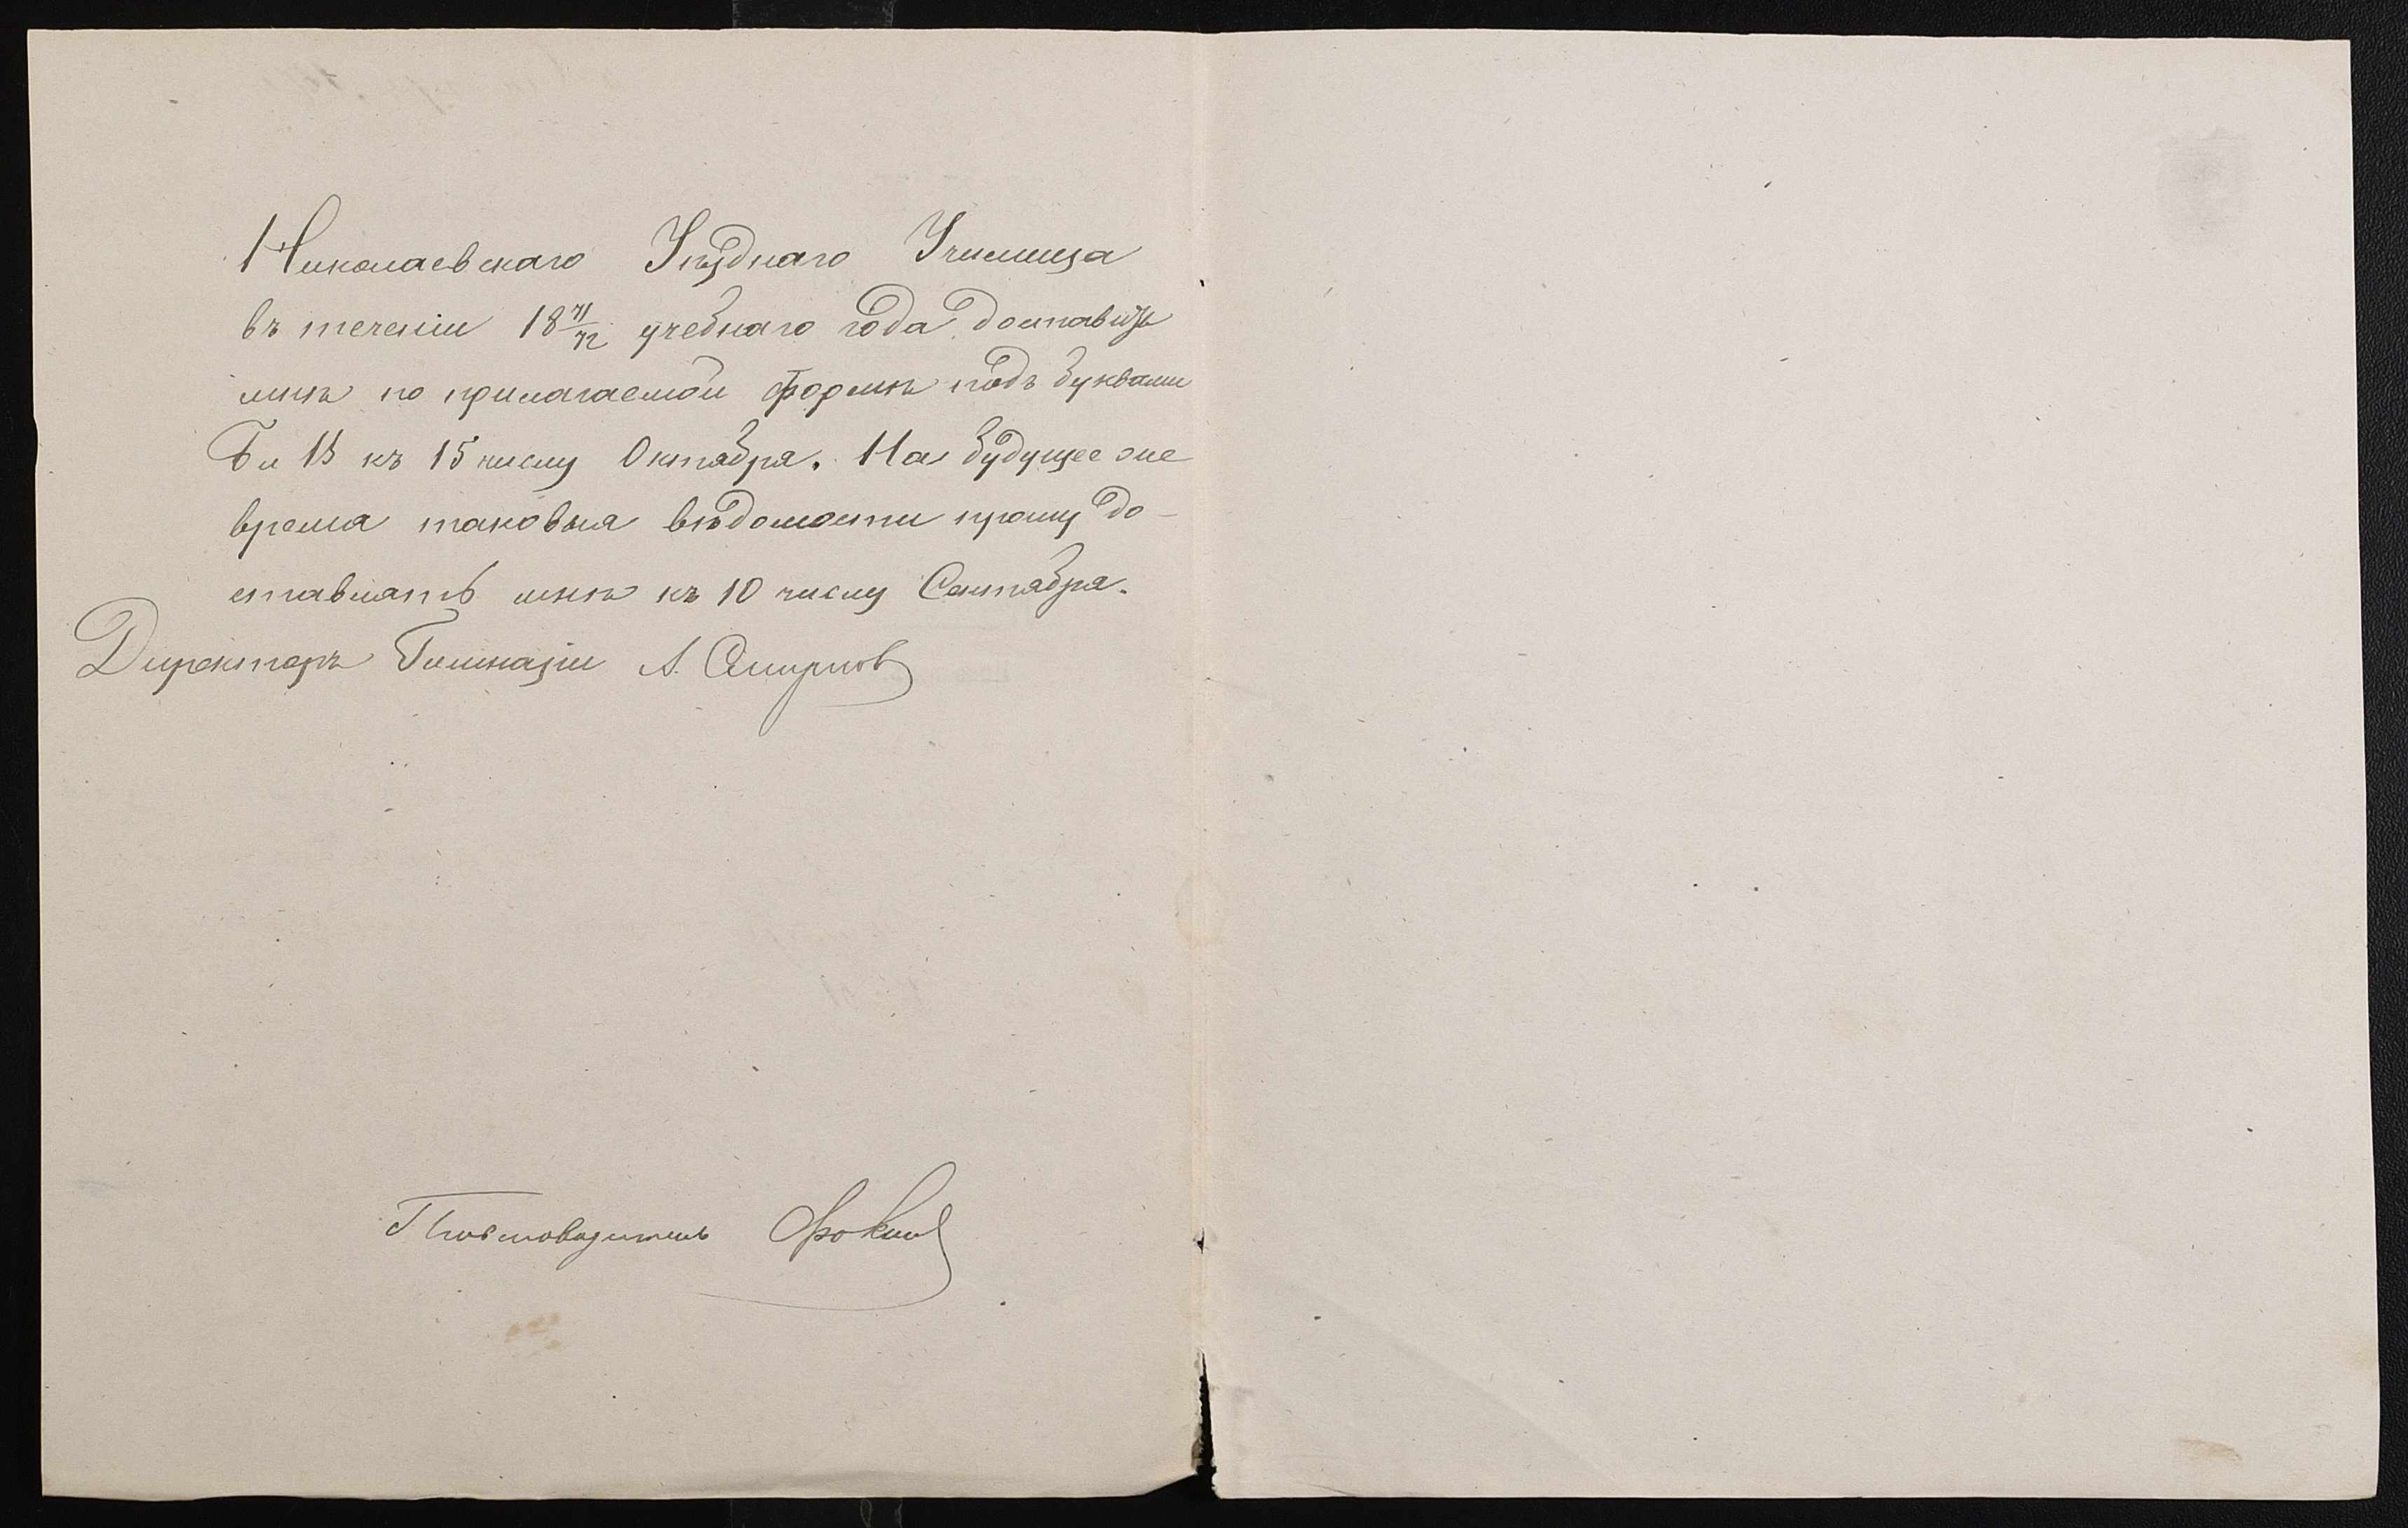 Николаевскаго Уѣзднаго Училища
въ теченіи 18 71/72 учебнаго года доставить
мнѣ по прилагаемой формѣ подъ буквами
Б и В къ 15 числу Октября. На будущее же
время таковыя вѣдомости прошу до-
ставлять мнѣ къ 10 числу Сентября.
Директоръ Гимназіи А. Смирнов
Письмоводитель Фокин